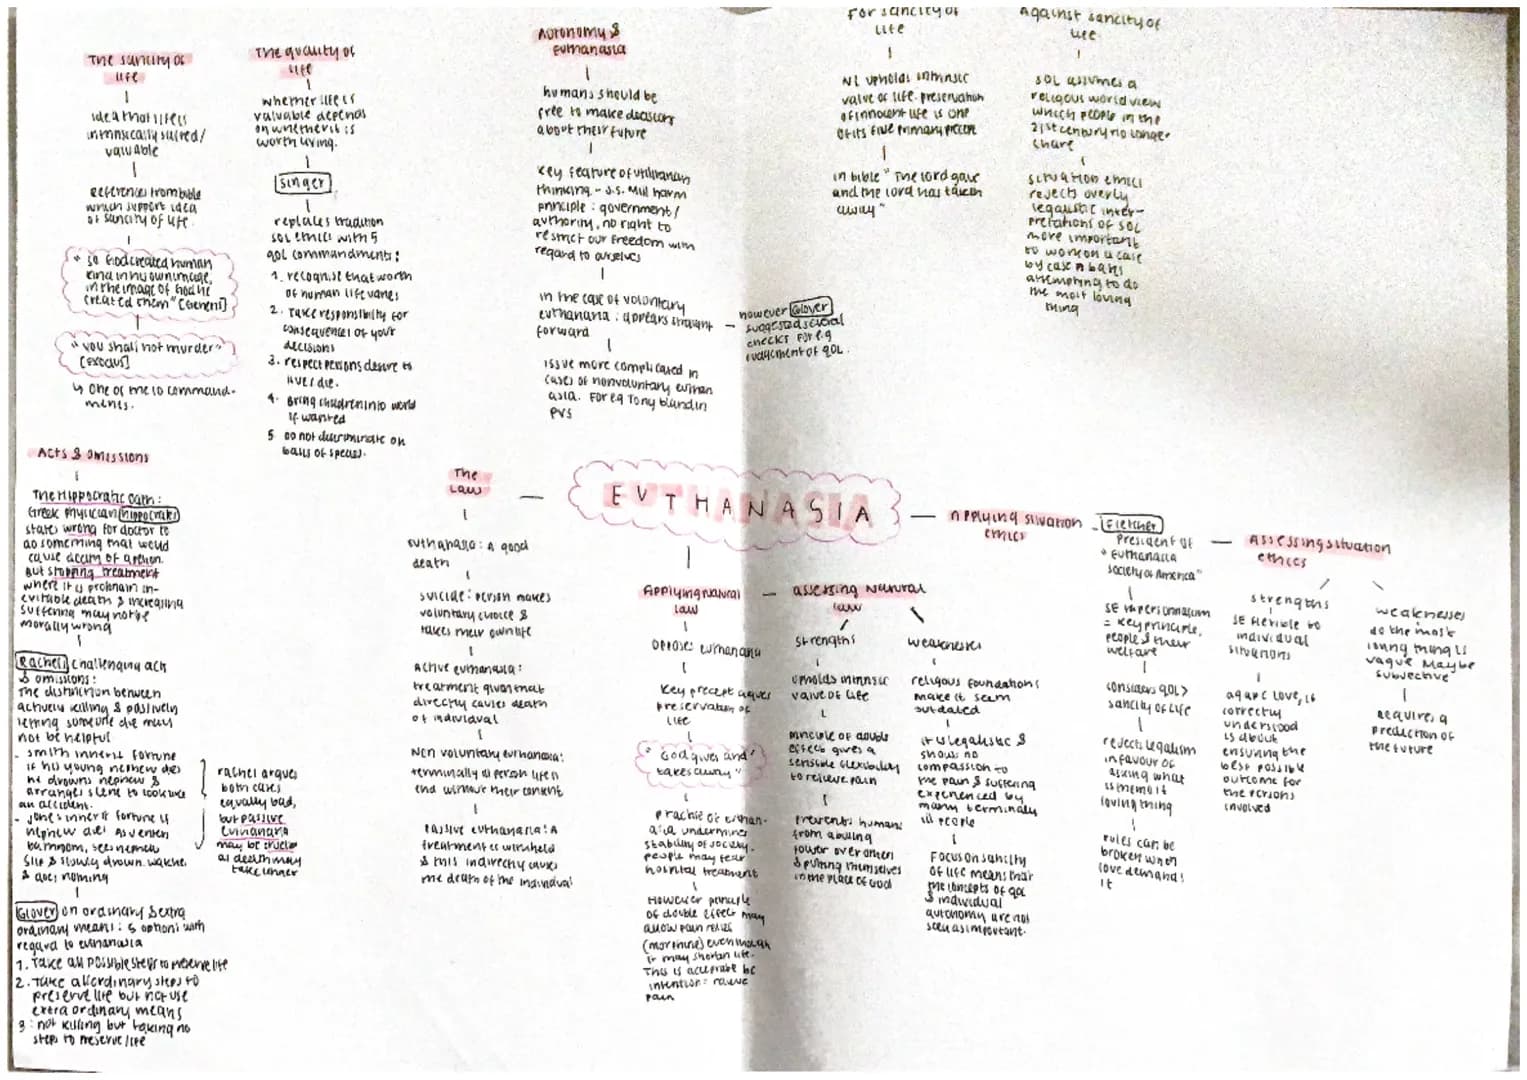 The sancity of
life
idea that life is
intrinsically sacred/
valuable
References from bible
which support idea
of sancity of life.
" so God created human
kind in his own image,
in the image of God he
created them" [Genesis]
"you shall not murder"
[Exodus]
↳ One of the 10 command-
ments.
The quality of
life
whether life is
valuable depends
on whether it is
worth living.
Singer
replaces tradition
SOL ethics with 5
QOL commandments:
1. recognise that worth
of human life varies
2. Take responsibility for
consequences of your
decisions
3. respect persons desire to
live / die.
4. Bring children into world
if wanted
5 Do not discriminate on
basis of species.
Autonomy &
Euthanasia
humans should be
free to make decisions
about their future
Key feature of utilitarian
thinking. - J.S. Mill harm
principle : government/
authority, no right to
restrict our freedom with
regard to ourselves
in the case of voluntary
euthanasia : appears straight
forward
issue more complicated in
cases of nonvoluntary euthan
asia. For eg Tony bland in
PVS
however Glover
suggested several
checks for e.g
judgement of QOL.
For sancity of
life
NL upholds intrinsic
value of life. preservation
of innocent life is one
of its five primary precepts
in bible " The lord gave
and the lord has taken
away"
Against sancity of
life
SOL assumes a
religous world view
which people in the
21st century no longer
share
situation ethics
rejects overly
legalistic inter-
pretations of SOL
more important
to work on a case
by case n basis
attempting to do
the most loving
thing
Acts & omissions
The Hippocratic oath:
Greek physician Hippocrates
states wrong for doctor to
do something that would
cause death of a person.
But stopping treatment
where it is prolonging in-
evitable death & increasing
suffering may not be
morally wrong
Rachels challenging acts
& omissions:
The distinction between
actively killing & passively
letting someone die may
not be helpful
- smith inherits fortune
if his young nephew dies
he drowns nephew &
arranges scene to look like
an accident.
- Jones inherit fortune if
nephew dies. As v enters
bathroom, sees nephew
slip & slowly drown. watches
& does nothing
rachel argues
both cases
equally bad,
but passive
Euthanasia
may be crueler
as death may
take longer
Glover on ordinary & extra
ordinary means : 5 options with
regard to euthanasia
1. Take all possible steps to preserve life
2. Take all ordinary steps to
preserve life but not use
extra ordinary means
3 : not killing but taking no
steps to preserve life
The
Law
euthanasia : A good
death
suicide : person makes
voluntary choice &
takes their own life
Active euthanasia :
treatment given that
directly causes death
of individual
Non voluntary euthanasia:
terminally ill person life is
end without their consent
Passive euthanasia : A
treatment is withheld
& this indirectly causes
the death of the individual
EUTHANASIA
Applying Natural
Law
opposes euthanasia
Key precept argues
preservation of
life
" God gives and
takes away"
practise of euthan-
asia undermines
stability of society.
people may fear
hospital treatment
However principle
of double effect may
allow pain relief
(morphine) even though
it may shorten life.
This is acceptable bc
intention = relieve
pain
assessing Natural
law
strengths
upholds intrinsic
value of life
principle of double
effect gives a
sensible flexibility
to relieve pain
Prevents humans
from abusing
power over others
& putting themselves
in the place of God
weaknesses
religous foundations
make it seem
outdated
it is legalistic &
shows no
compassion to
the pain & suffering
experienced by
many terminaly
ill people
Focus on sancity
of life means that
the concepts of QOL
& individual
autonomy are not
seen as important.
Applying situation
ethics
Fletcher
President of
" Euthanasia
society of America"
SE = personalism
= key principle,
people & their
welfare
considers QOL >
sancity of life
rejects legalism
in favour of
asking what
is the most
loving thing
rules can be
broken when
love demands
it
Assessing situation
ethics
strengths
SE flexible to
individual
situations
agape love, is
correctly
understood
is about
ensuring the
best possible
outcome for
the persons
involved
weaknesses
do the most
loving thing is
vague. Maybe
subjective
Requires a
prediction of
the future